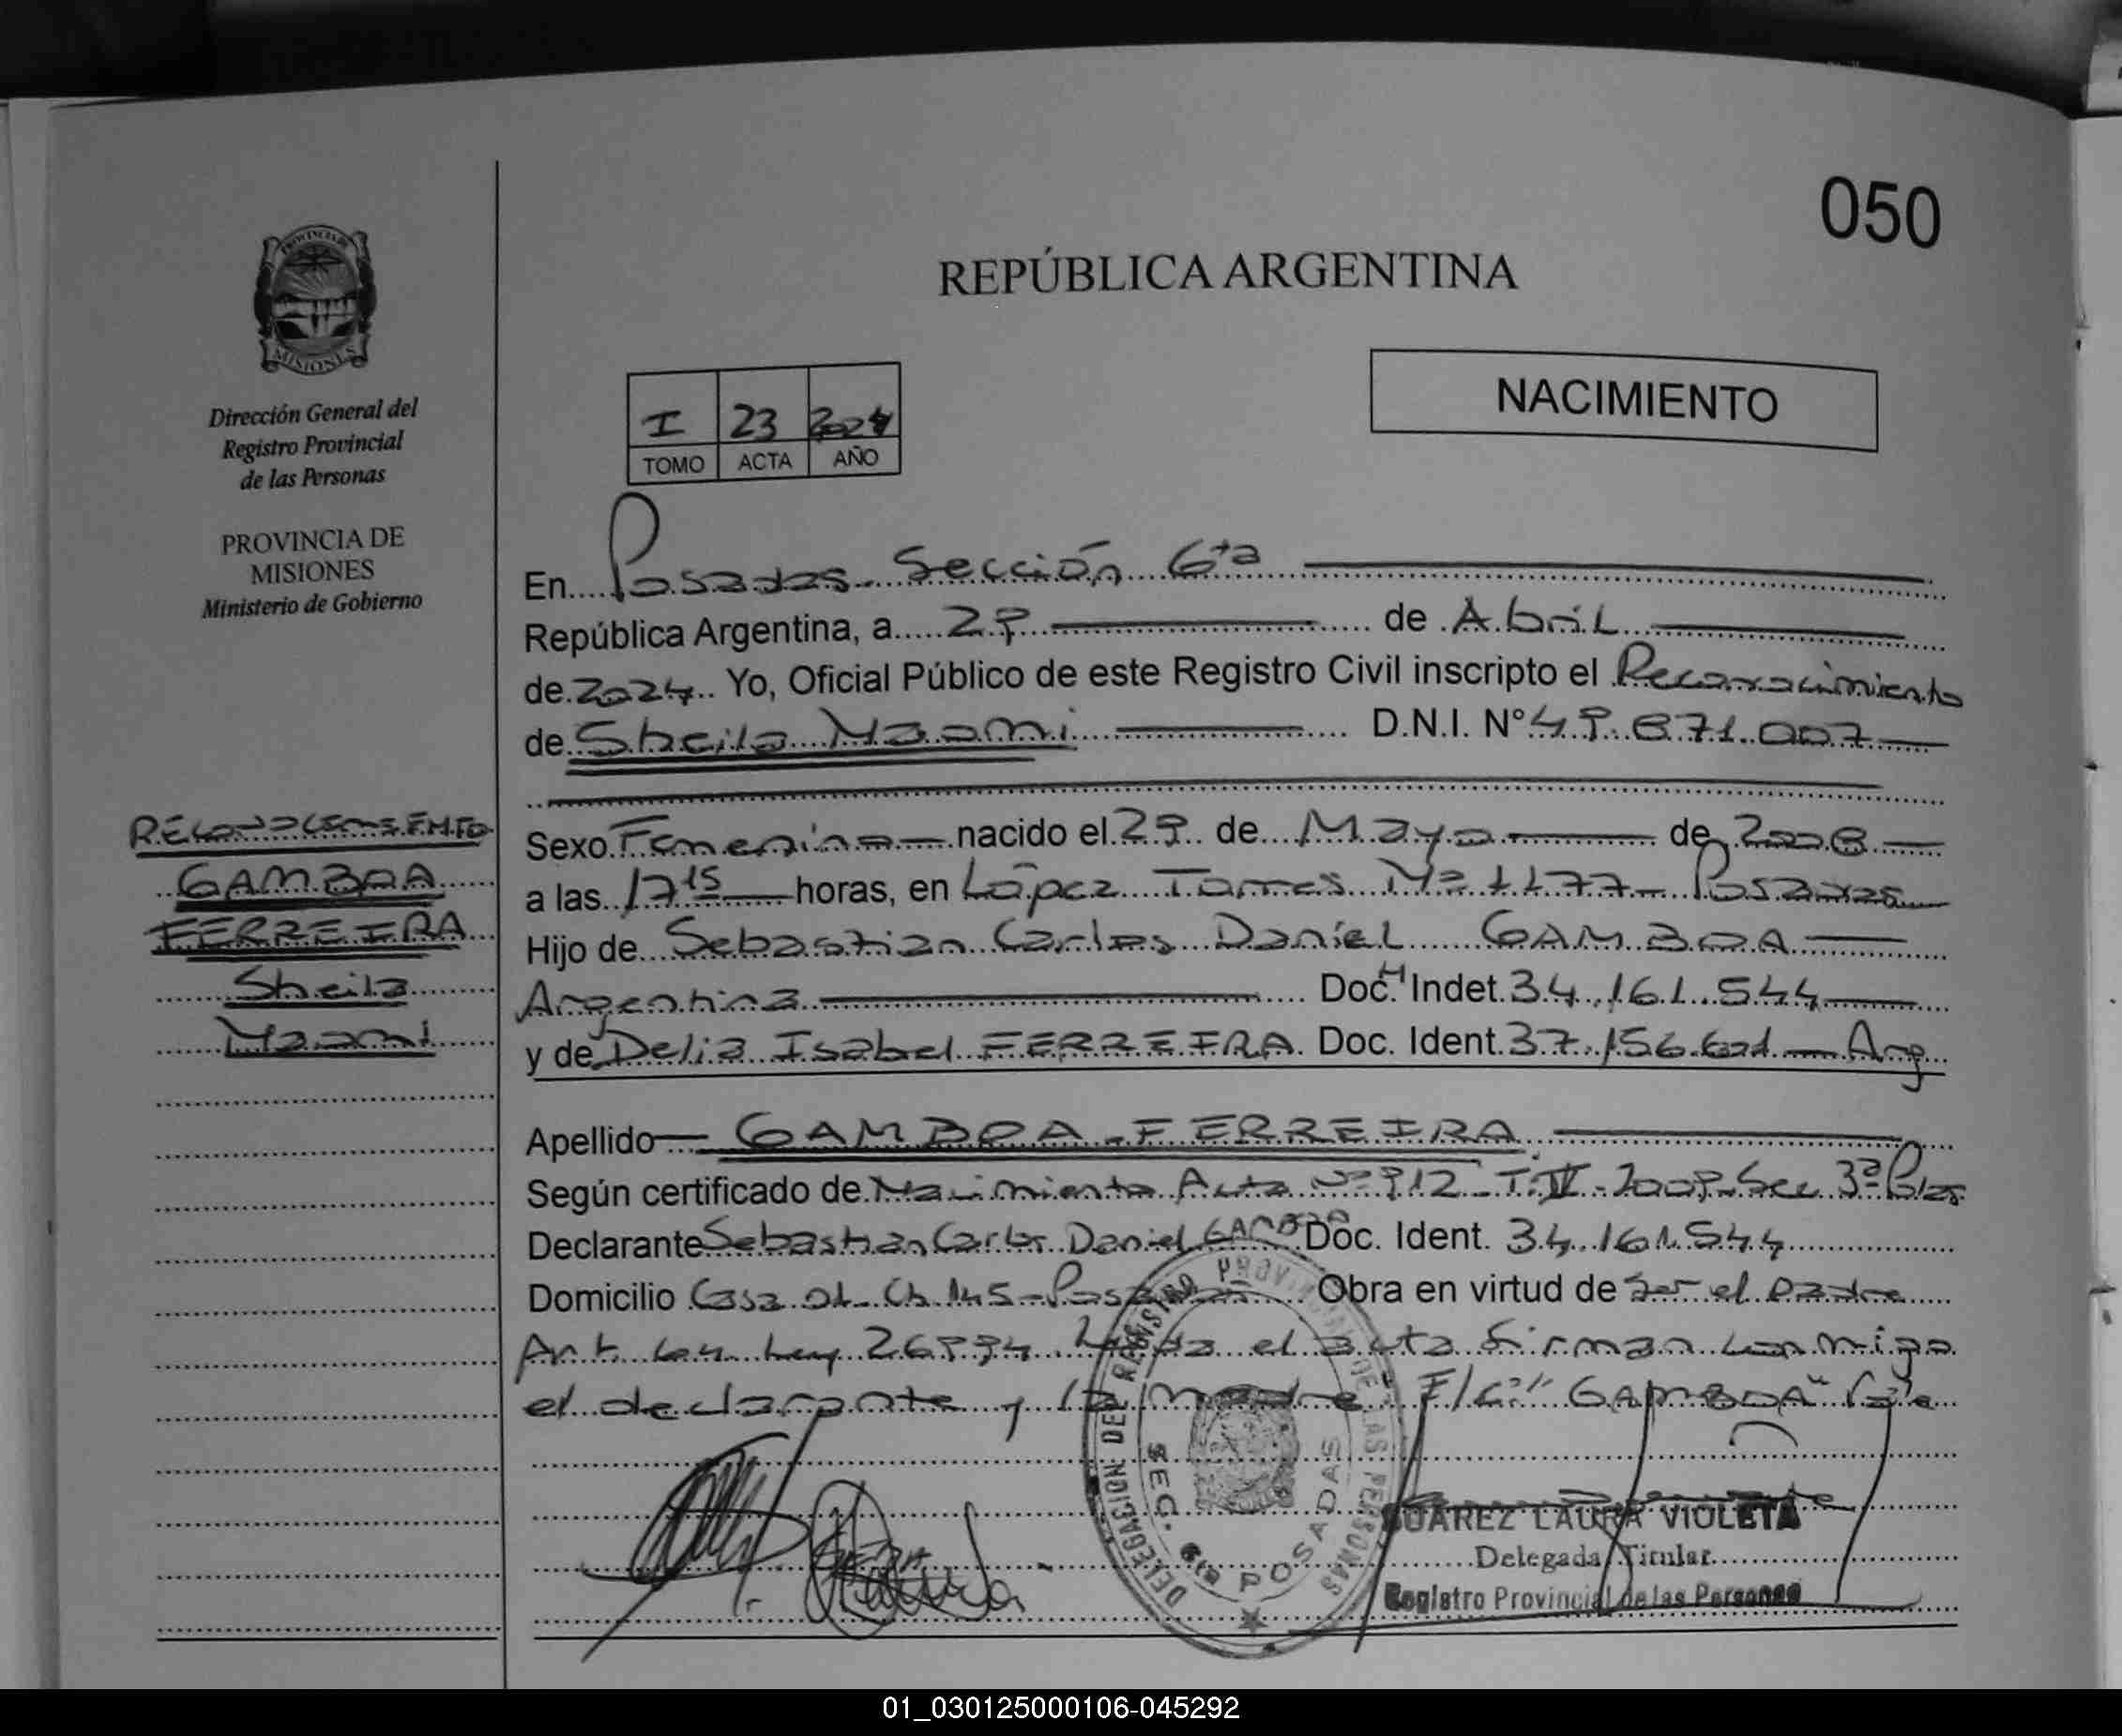 050
REPÚBLICA ARGENTINA
NACIMIENTO
PROVINCIA DE
MISIONES
Dirección General del
Registro Provincial
de las Personas
PROVINCIA DE
MISIONES
Ministerio de Gobierno
I 23 2024
TOMO ACTA AÑO
En Posadas Sección 6ta
República Argentina, a 29 de Abril
de 2024 Yo, Oficial Público de este Registro Civil inscripto el Reconocimiento
de Sheila Naomi D.N.I. Nº 49.871.007
RECONOCIMIENTO
GAMBOA
FERREIRA
Sheila
Naomi
Sexo Femenino nacido el 29 de Mayo de 2008
a las 17 15 horas, en López Torres Nº 1177 - Posadas
Hijo de Sebastian Carlos Daniel GAMBOA
Argentina Doc. Indet. 34.161.544
y de Delia Isabel FERREIRA Doc. Ident. 37.156.601 Arg
Apellido GAMBOA FERREIRA
Según certificado de Nacimiento Acta Nº 912 - T. IV - 2009 - Sec 3ª Pdas
Declarante Sebastian Carlos Daniel GAMBOA Doc. Ident. 34.161.544
Domicilio Casa 01 Ch 145 - Posadas Obra en virtud de ser el padre
Art. 64 Ley 26994 el acta firman conmigo
el declarante y la madre E/L "GAMBOA" Vale
DELEGACION DEL REGISTRO PROVINCIAL DE LAS PERSONAS
SEC. 6ta POSADAS
SUAREZ LAURA VIOLETA
Delegada Titular
Registro Provincial de las Personas
01_030125000106-045292